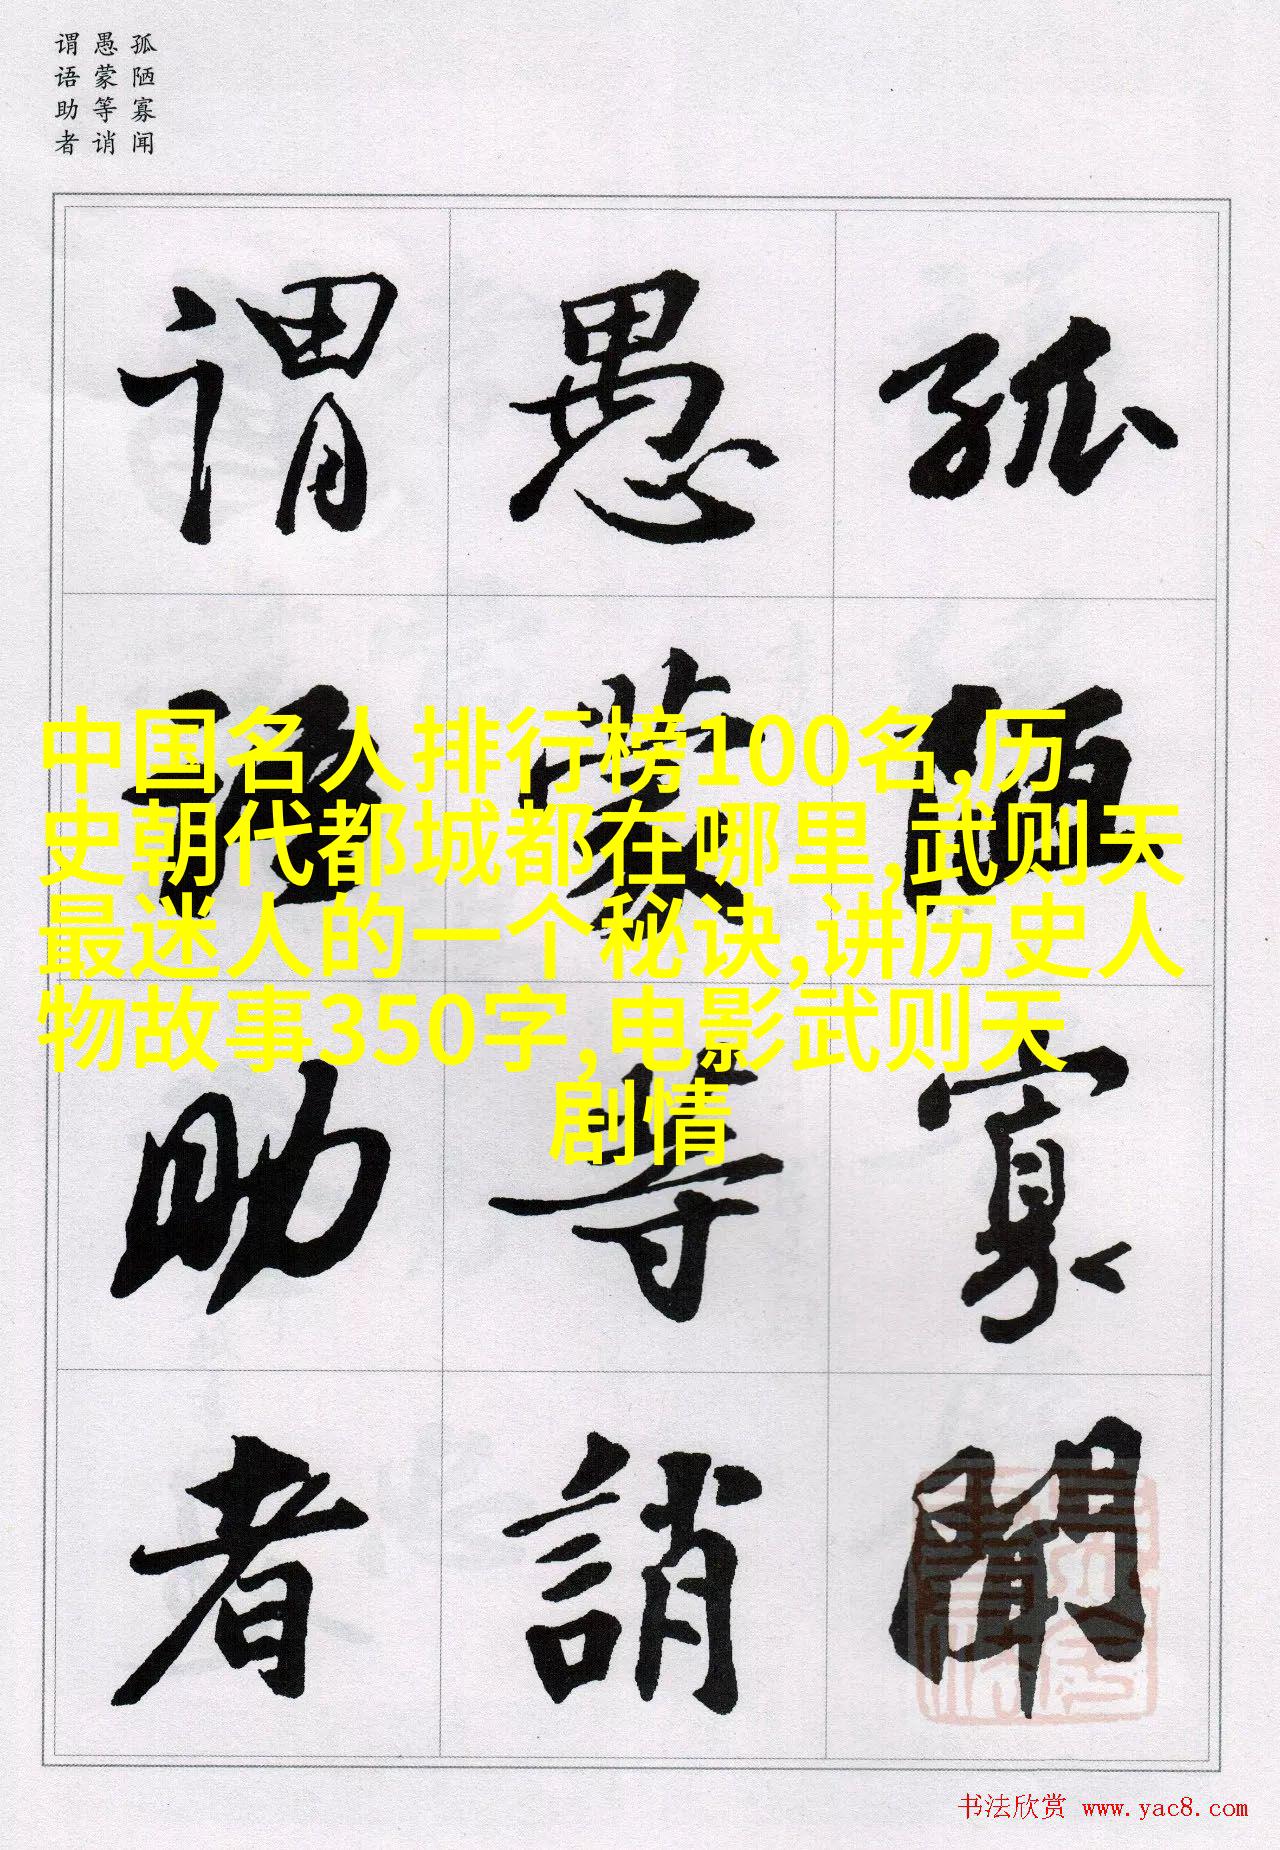 孤陋寡闻
愚蒙等诮
谓语助者
孤陋寡聞
愚蒙等誚
謂語助者
中国名人排行榜100名,历
史朝代都城都在哪里,武则天
最迷人的一个秘诀,讲历史人
物故事350字,电影武则天
剧情
书法欣赏 www.yac8.com